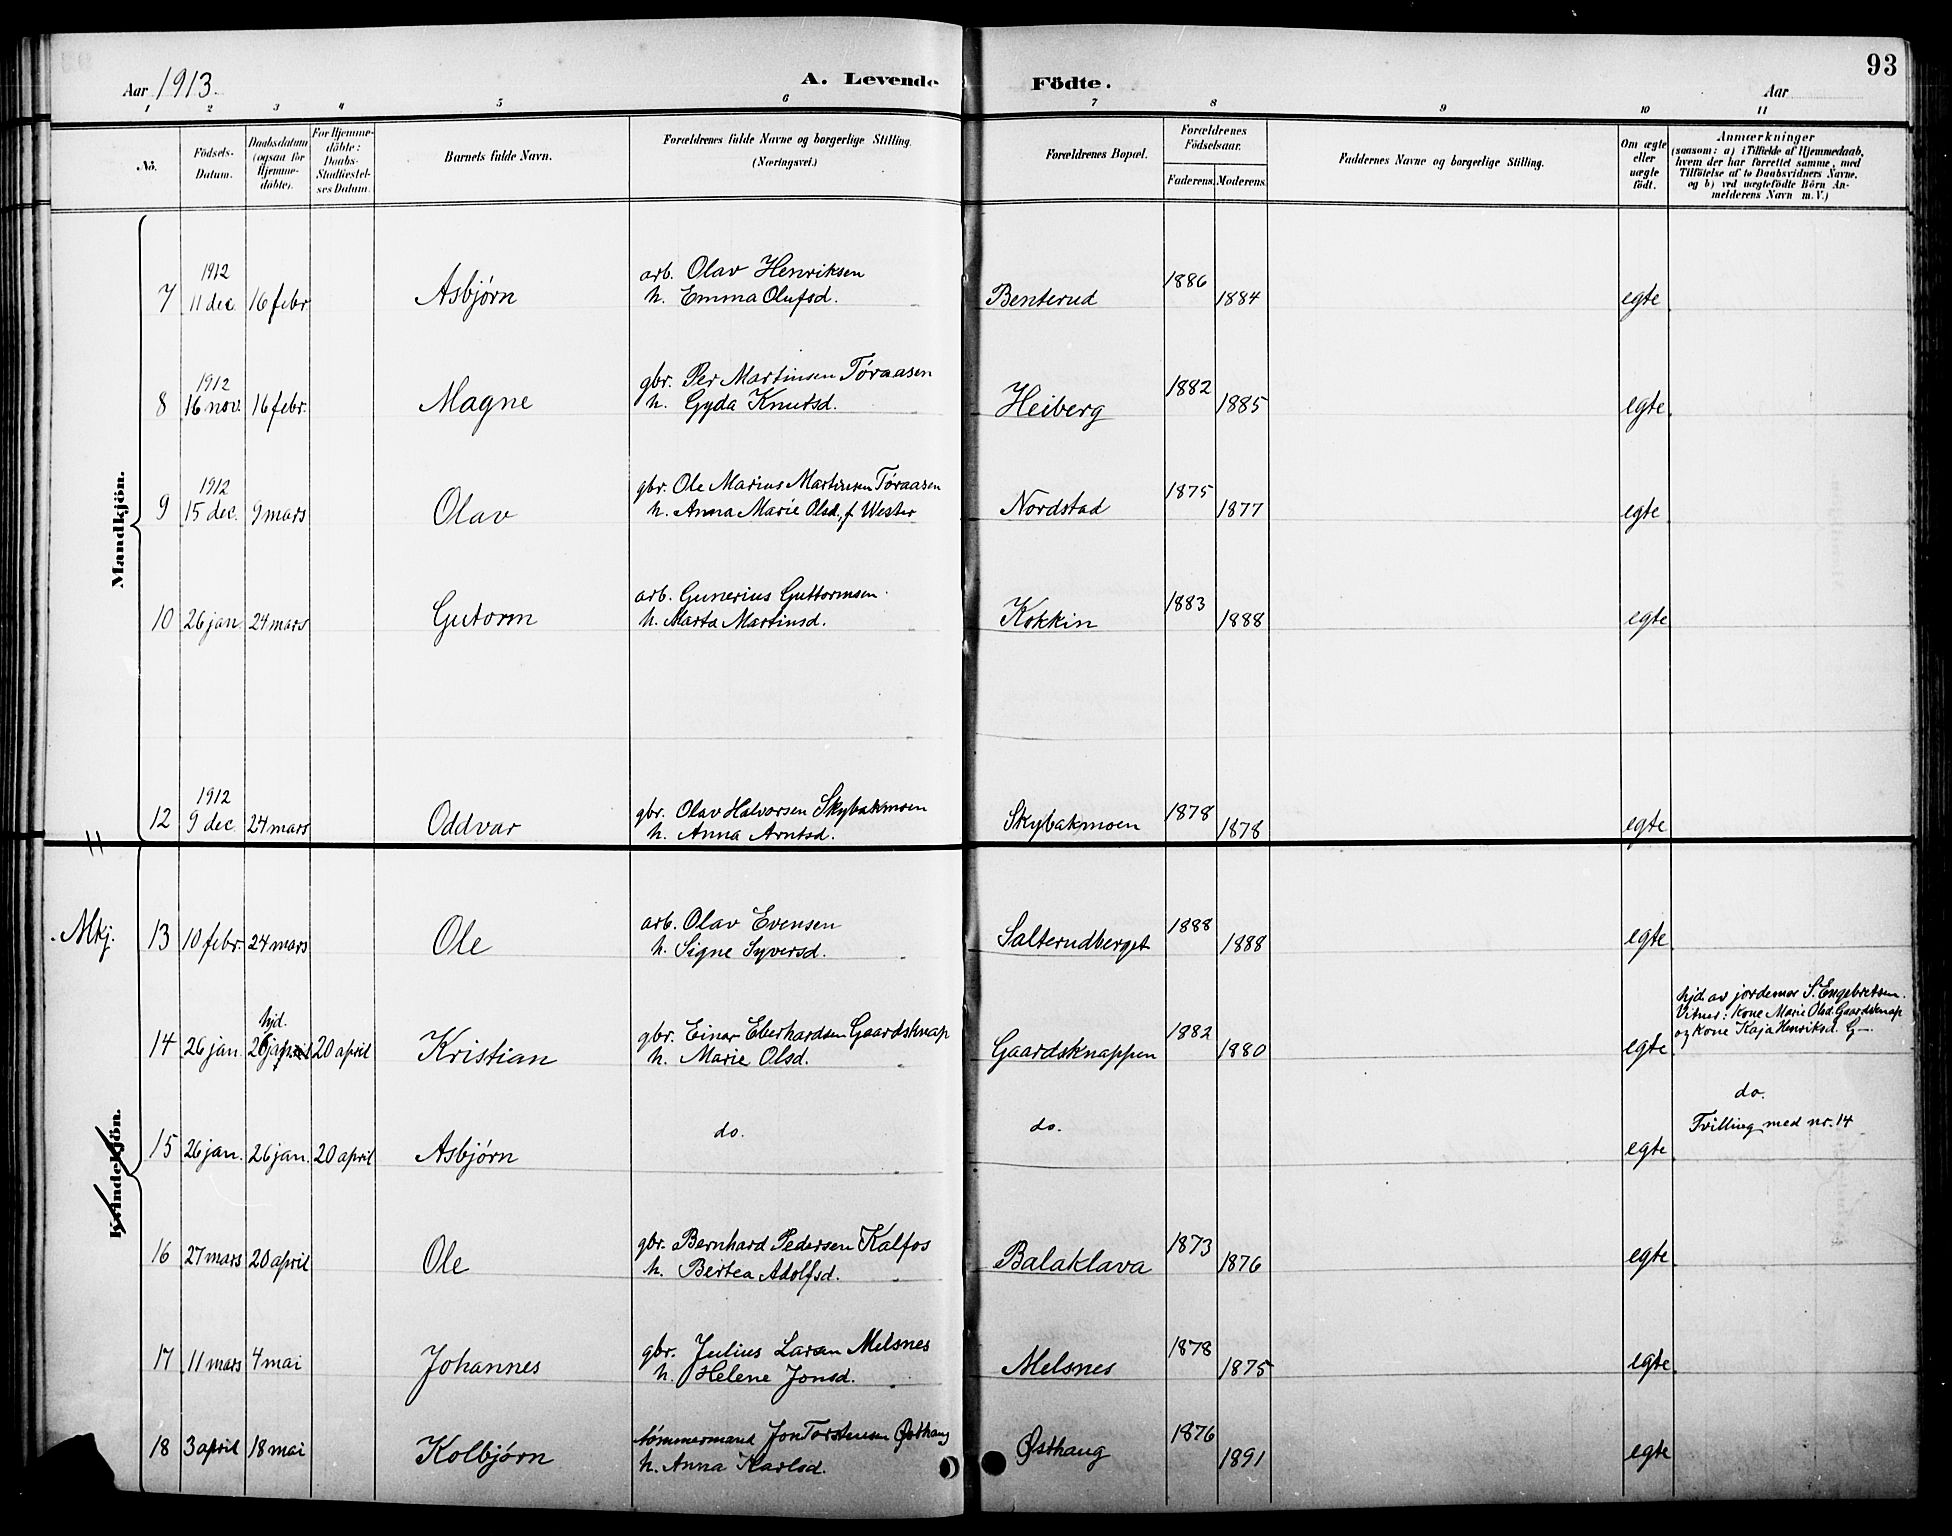 Aar 1913.
A. Levende Födte.
Aar
93
1 2 3 4 5 6 7 8 9 10 11
Nö.
Födsels-Datum.
Daabsdatum (ogsaa for Hjemme-döbte).
For Hjemme-döbte: Daabs-Stadfæstel-ses Datum.
Barnets fulde Navn.
Forældrenes fulde Navne og borgerlige Stilling. (Næringsvei.)
Forældrenes Bopæl.
Forældrenes Födselsaar.
Faderens. Moderens.
Faddernes Navne og borgerlige Stilling.
Om ægte eller uægte födt.
Anmærkninger
(saasom: a) i Tilfælde af Hjemmedaab, hvem der har forrettet samme, med Tilföielse af to Daabsvidners Navne. og b) ved uægtefödte Börn An-melderens Navn m. V.)
Mandkjön.
7 1912 11 dec. 16 febr. Asbjørn arb. Olav Henriksen Benterud 1886 1884 egte
h. Emma Olufsd.
8 1912 16 nov. 16 febr. Magne gbr. Per Martinsen Tøraasen Heiberg 1882 1885 egte
h. Gyda Knutsd.
9 1912 15 dec. 9 mars Olav gbr. Ole Marius Martinsen Tøraasen Nordstad 1875 1877 egte
h. Anna Marie Olsd., f. Wester
10 26 jan. 24 mars Gutorm arb. Gunerius Guttormsen Kokkin 1883 1888 egte
h. Marta Martinsd.
12 1912 9 dec. 24 mars Oddvar gbr. Olav Halvorsen Skybakmoen Skybakmoen 1878 1878 egte
h. Anna Arntsd.
Mkj.
13 10 febr. 24 mars Ole arb. Olav Evensen Salterudberget 1888 1888 egte
h. Signe Syversd.
14 26 jan. hjd. 26 jan. 20 april Kristian gbr. Einar Eberhardsen Gaardsknap Gaardsknappen 1882 1880 egte
h. Marie Olsd.
hjd. av jordemor S. Engebretsen.
Vitner: Kone Marie Olsd. Gaardsknap
og kone Kaja Henriksd. G—
Kvindekjön.
15 26 jan. 26 jan. 20 april Asbjørn do. do. egte do.
Tvilling med nr. 14
16 27 mars 20 april Ole gbr. Bernhard Pedersen Kalfos Balaklava 1873 1876 egte
h. Bertea Adolfsd.
17 11 mars 4 mai Johannes gbr. Julius Larsen Melsnes Melsnes 1878 1875 egte
h. Helene Jonsd.
18 3 april 18 mai Kolbjørn tømmermand Jon Torstensen Østhaug Østhaug 1876 1891 egte
h. Anna Karlsd.